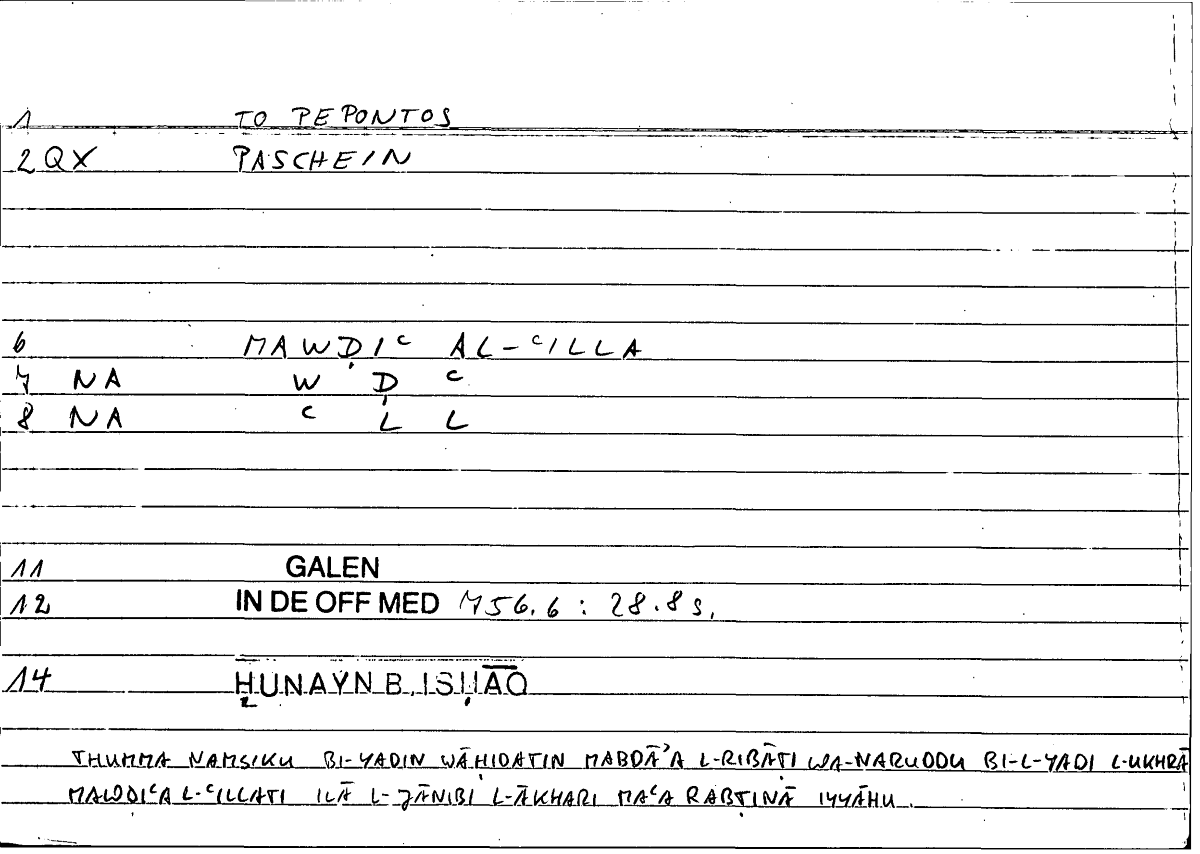 1 TO PEPONTOS
2 QX PASCHEIN
6 MAWḌIᶜ AL-ᶜILLA
7 NA W Ḍ ᶜ
8 NA ᶜ L L
11 GALEN
12 IN DE OFF MED 756.6 : 28.8 s.
14 ḤUNAYN B. ISḤĀQ
THUMMA NAMSIKU BI-YADIN WĀḤIDATIN MABDĀʾA L-RIBĀṬI WA-NARUDDU BI-L-YADI L-UKHRĀ
MAWḌIᶜA L-ᶜILLATI ILĀ L-JĀNIBI L-ĀKHARI MAᶜA RABṬINĀ IYYĀHU.